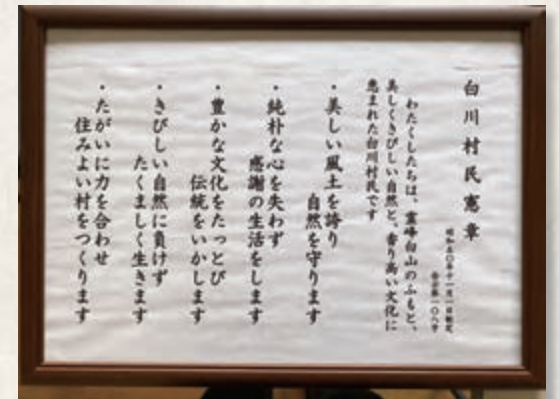 白川村民憲章
わたくしたちは、霊峰白山のふもと、
美しくきびしい自然と、香り高い文化に
恵まれた白川村民です
・美しい風土を誇り
自然を守ります
・純朴な心を失わず
感謝の生活をします
・豊かな文化をたっとび
伝統をいかします
・きびしい自然に負けず
たくましく生きます
・たがいに力を合わせ
住みよい村をつくります